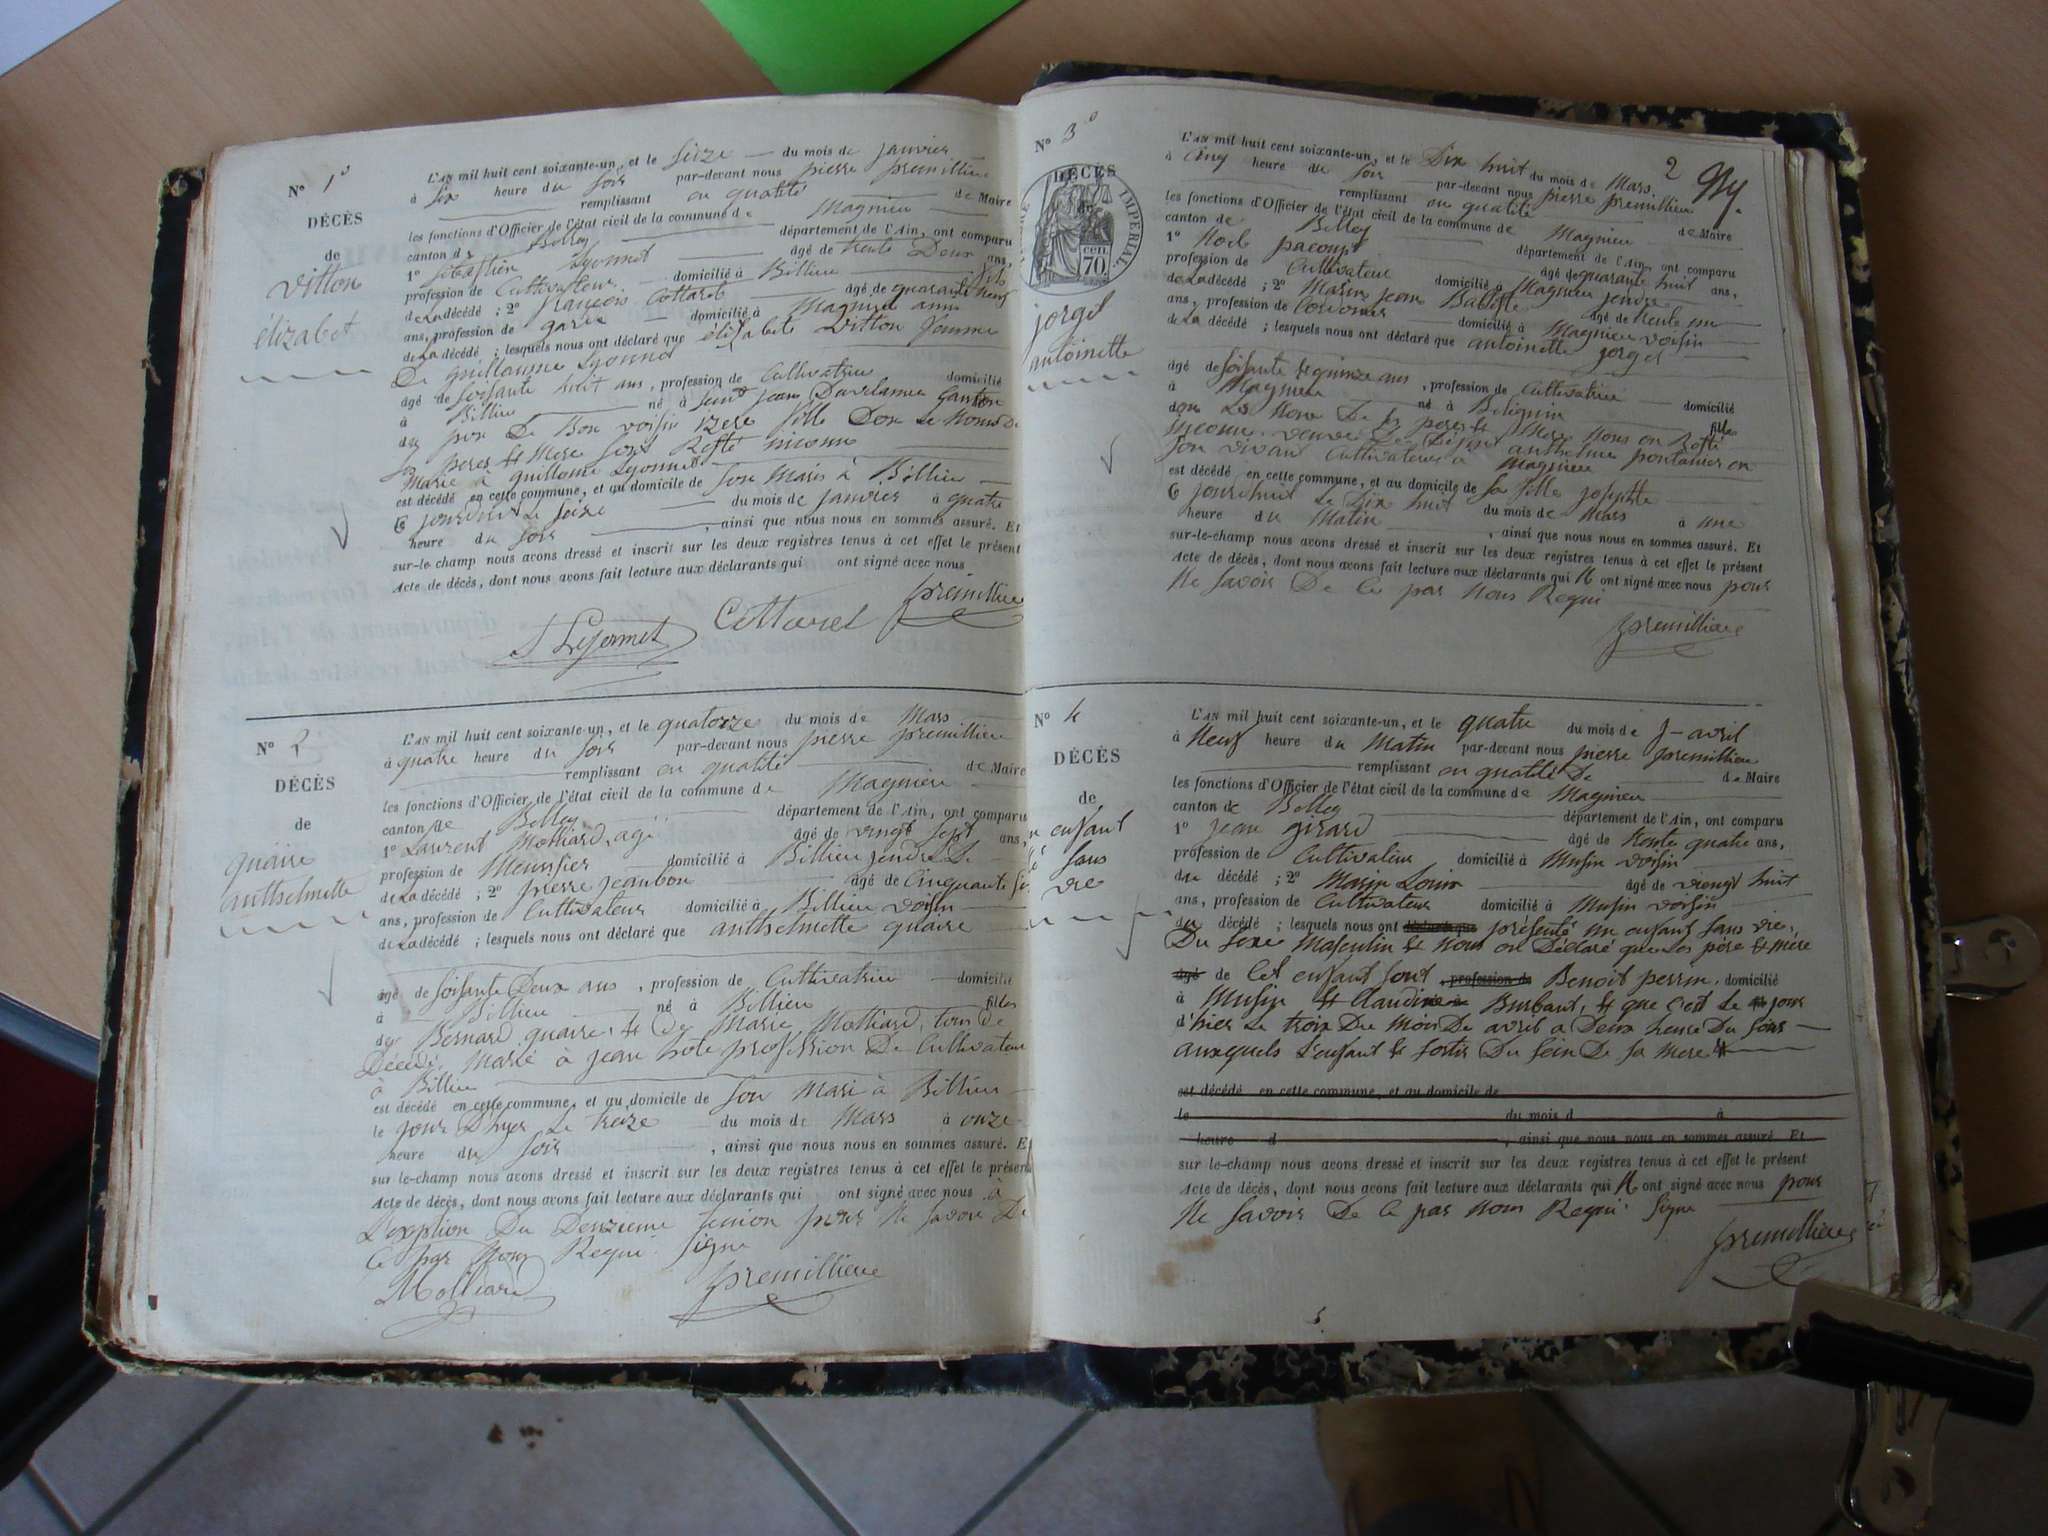 N° 1°
DÉCÈS
de
Vitton
élizabet
L'AN mil huit cent soixante-un, et le seize du mois de janvier
à six heure du soir par-devant nous pierre premillieu
remplissant en qualité de Maire
les fonctions d'Officier de l'état civil de la commune de Magnieu
canton de Belley département de l'Ain, ont comparu
1° Sébastien Lyonnet âgé de trente Deux ans,
profession de Cultivateur domicilié à Billieu fils
de La décédé ; 2° françois Cottarel âgé de quarante neuf
ans, profession de garde domicilié à Magnieu ami
de La décédé ; lesquels nous ont déclaré que élizabete Vitton femme
De guillaume Lyonnet
âgé de soisante huit ans, profession de Cultivatrice domicilié
à Billieu né à saint jean Davelanne Canton
du pon De Bon voisin izere fille Don Le Noms De
peres et Mere sont Resté inconu
Marié a guillome Lyonnet
est décédé en cette commune, et au domicile de son Maris à Billieu
le jourdhui Le seize du mois de janvier à quatre
heure du soir, ainsi que nous nous en sommes assuré. Et
sur-le-champ nous avons dressé et inscrit sur les deux registres tenus à cet effet le présent
Acte de décès, dont nous avons fait lecture aux déclarants qui ont signé avec nous
premillieu
S Lyonnet Cottarel
N° 2
DÉCÈS
de
quaire
anthelmette
L'AN mil huit cent soixante-un, et le quatorze du mois de Mars
à quatre heure du soir par-devant nous pierre premillieu
remplissant en qualité de Maire
les fonctions d'Officier de l'état civil de la commune de Magnieu
canton de Belley département de l'Ain, ont comparu
1° Laurent Molliard, agé âgé de vingt sept ans,
profession de Meunsier domicilié à Billieu jendre De
de La décédé ; 2° pierre jeanbon âgé de Cinquante si
ans, profession de Cultivateur domicilié à Billieu voisin
de La décédé ; lesquels nous ont déclaré que anthelmette quaire
âgé de soisante Deux ans, profession de Cultivatrice domicilié
à Billieu né à Billieu filles
de Bernard quaire, et de Marie Molliard, tous De
Décédé, Marié à jean hote profession De Cultivateur
à Billieu
est décédé en cette commune, et au domicile de son Mari à Billieu
le jour D'hyer Le treize du mois de Mars à onze
heure du soir, ainsi que nous nous en sommes assuré. E
sur le-champ nous avons dressé et inscrit sur les deux registres tenus à cet effet le présent
Acte de décès, dont nous avons fait lecture aux déclarants qui ont signé avec nous à
L'exeption Du Deuzieme temion pour Ne savoir De
Ce par Nous Requi. signe
Molliard premillieu
N° 3°
DÉCÈS
de
TIMBRE IMPÉRIAL
70 cen
jorget
antoinette
2
L'AN mil huit cent soixante-un, et le Dix huit du mois de Mars
à Cinq heure du soir par-devant nous pierre premillieu
remplissant en qualité de Maire
les fonctions d'Officier de l'état civil de la commune de Magnieu
canton de Belley département de l'Ain, ont comparu
1° Noel pacoup âgé de quarante huit ans,
profession de Cultivateur domicilié à Magnieu jendre
de La décédé ; 2° Marin jean Batiste âgé de trente un
ans, profession de domicilié à Magnieu voisin
de La décédé ; lesquels nous ont déclaré que antoinette jorget
âgé de soisante et quinze ans, profession de Cultivatrice domicilié
à Magnieu né à Belignin fille
don Le Nom De peres et Mere Nous en Resté
inconu. veuve De anthelme pontanier en
son vivant Cultivateur à Magnieu
est décédé en cette commune, et au domicile de sa fille josephte
le jourdhuit Le Dix huit du mois de Mars à une
heure du Matin, ainsi que nous nous en sommes assuré. Et
sur-le-champ nous avons dressé et inscrit sur les deux registres tenus à cet effet le présent
Acte de décès, dont nous avons fait lecture aux déclarants qui N ont signé avec nous pour
Ne savoir De Ce par Nous Requi
premillieu
N° 4
DÉCÈS
de
n enfant
sans
vie
L'AN mil huit cent soixante-un, et le quatre du mois de avril
à Neuf heure du Matin par-devant nous pierre premillieu
remplissant en qualité De de Maire
les fonctions d'Officier de l'état civil de la commune de Magnieu
canton de Belley département de l'Ain, ont comparu
1° jean girard âgé de trente quatre ans,
profession de Cultivateur domicilié à Musin voisin
du décédé ; 2° Marin Louis âgé de viengt huit
ans, profession de Cultivateur domicilié à Musin voisin
du décédé ; lesquels nous ont déclaré que présenté un enfant sans vie,
Du sexe Masculin et Nous on Déclaré que Les père et mère
âgé de Cet enfant sont, profession de Benoit perrin, domicilié
à Musin et Claudine Burbant, et que c'est Le jour
d'hier Le troix Du Mois De avril a Deux heure Du soir
auxquels L'enfant et sortis Du sein De sa Mere
est décédé en cette commune, et au domicile de
le du mois d à
heure d , ainsi que nous nous en sommes assuré. Et
sur le-champ nous avons dressé et inscrit sur les deux registres tenus à cet effet le présent
Acte de décès, dont nous avons fait lecture aux déclarants qui N ont signé avec nous pour
Ne savoir De Ce par Nous Requi. signe
premillieu